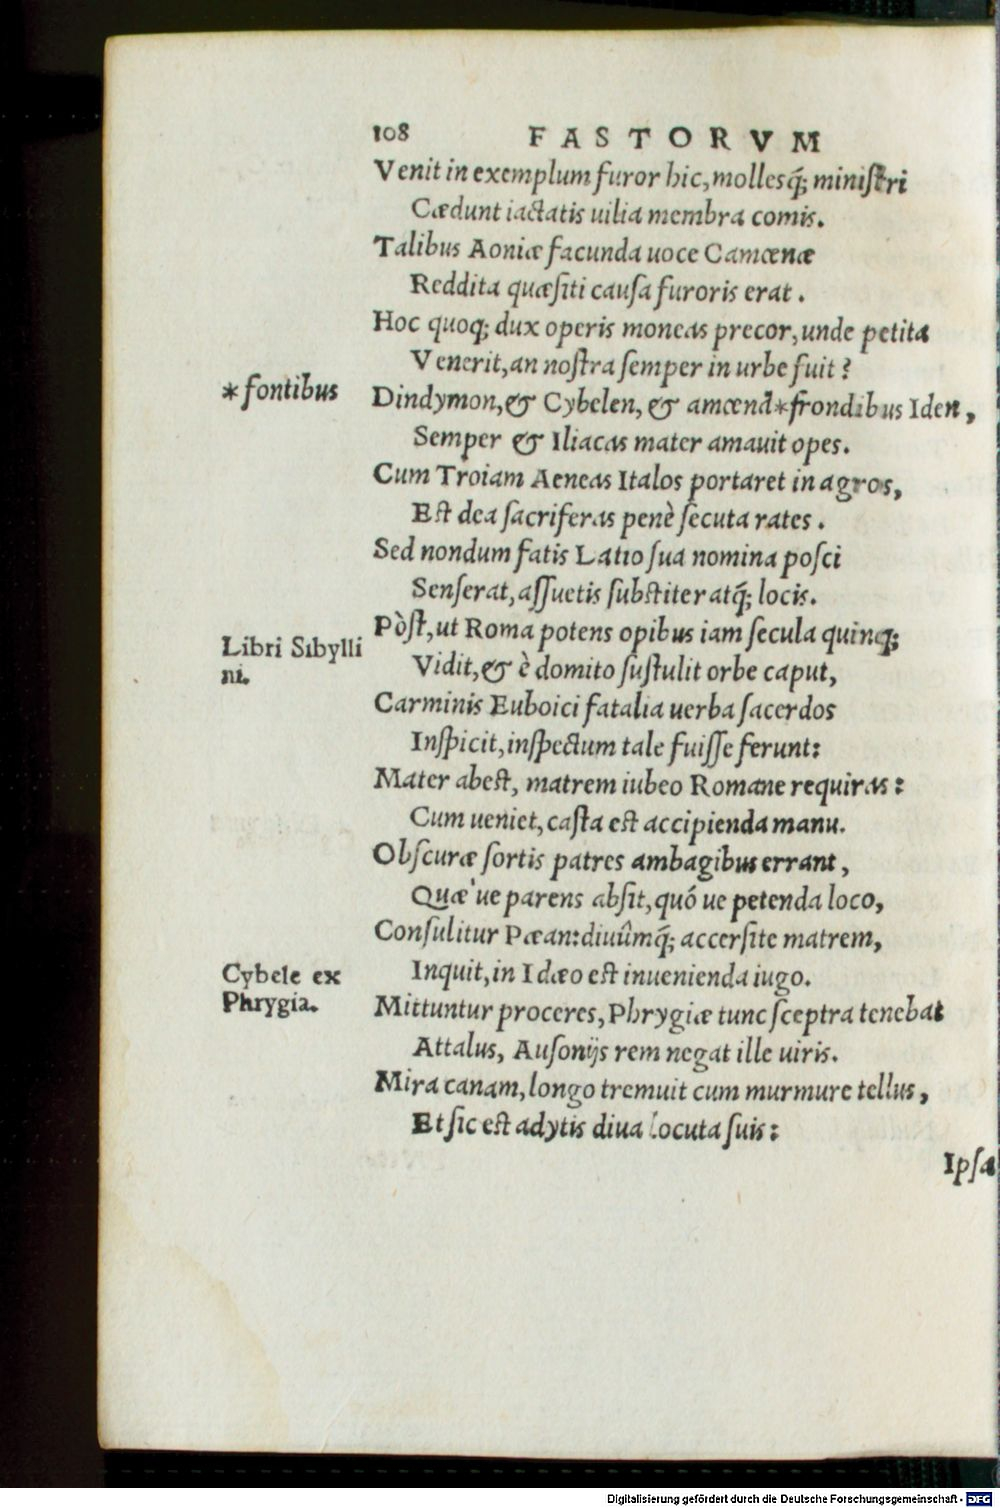 108 FASTORVM
Venit in exemplum furor hic, mollesq́; miniſtri
Cædunt iactatis uilia membra comis.
Talibus Aoniæ facunda uoce Camœnæ
Reddita quæſiti cauſa furoris erat.
Hoc quoq; dux operis moneas precor, unde petita
Venerit, an noſtra ſemper in urbe fuit?
*fontibus
Dindymon, & Cybelen, & amœnā*frondibus Iden,
Semper & Iliacas mater amauit opes.
Cum Troiam Aeneas Italos portaret in agros,
Eſt dea ſacriferas penè ſecuta rates.
Sed nondum fatis Latio ſua nomina poſci
Senſerat, aſſuetis ſubſtiter atq́; locis.
Pòſt, ut Roma potens opibus iam ſecula quinq;
Libri Sibylli
ni.
Vidit, & è domito ſuſtulit orbe caput,
Carminis Euboici fatalia uerba ſacerdos
Inſpicit, inſpectum tale fuiſſe ferunt:
Mater abeſt, matrem iubeo Romane requiras:
Cum ueniet, caſta eſt accipienda manu.
Obſcuræ ſortis patres ambagibus errant,
Quæ'ue parens abſit, quó ue petenda loco,
Conſulitur Pæan: diuûmq́; accerſite matrem,
Cybele ex
Phrygia.
Inquit, in Idæo eſt inuenienda iugo.
Mittuntur proceres, Phrygiæ tunc ſceptra tenebat
Attalus, Auſonijs rem negat ille uiris.
Mira canam, longo tremuit cum murmure tellus,
Et ſic eſt adytis diua locuta ſuis:
Ipſa
Digitalisierung gefördert durch die Deutsche Forschungsgemeinschaft - DFG